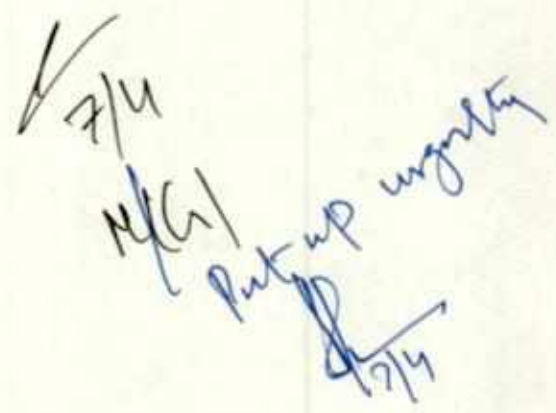 7/4
M(G)
Put up urgently
7/4